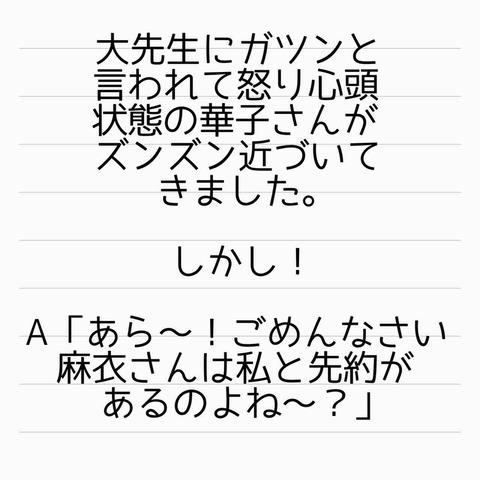 大先生にガツンと
言われて怒り心頭
状態の華子さんが
ズンズン近づいて
きました。
しかし！
A「あら〜！ごめんなさい
麻衣さんは私と先約が
あるのよね〜？」